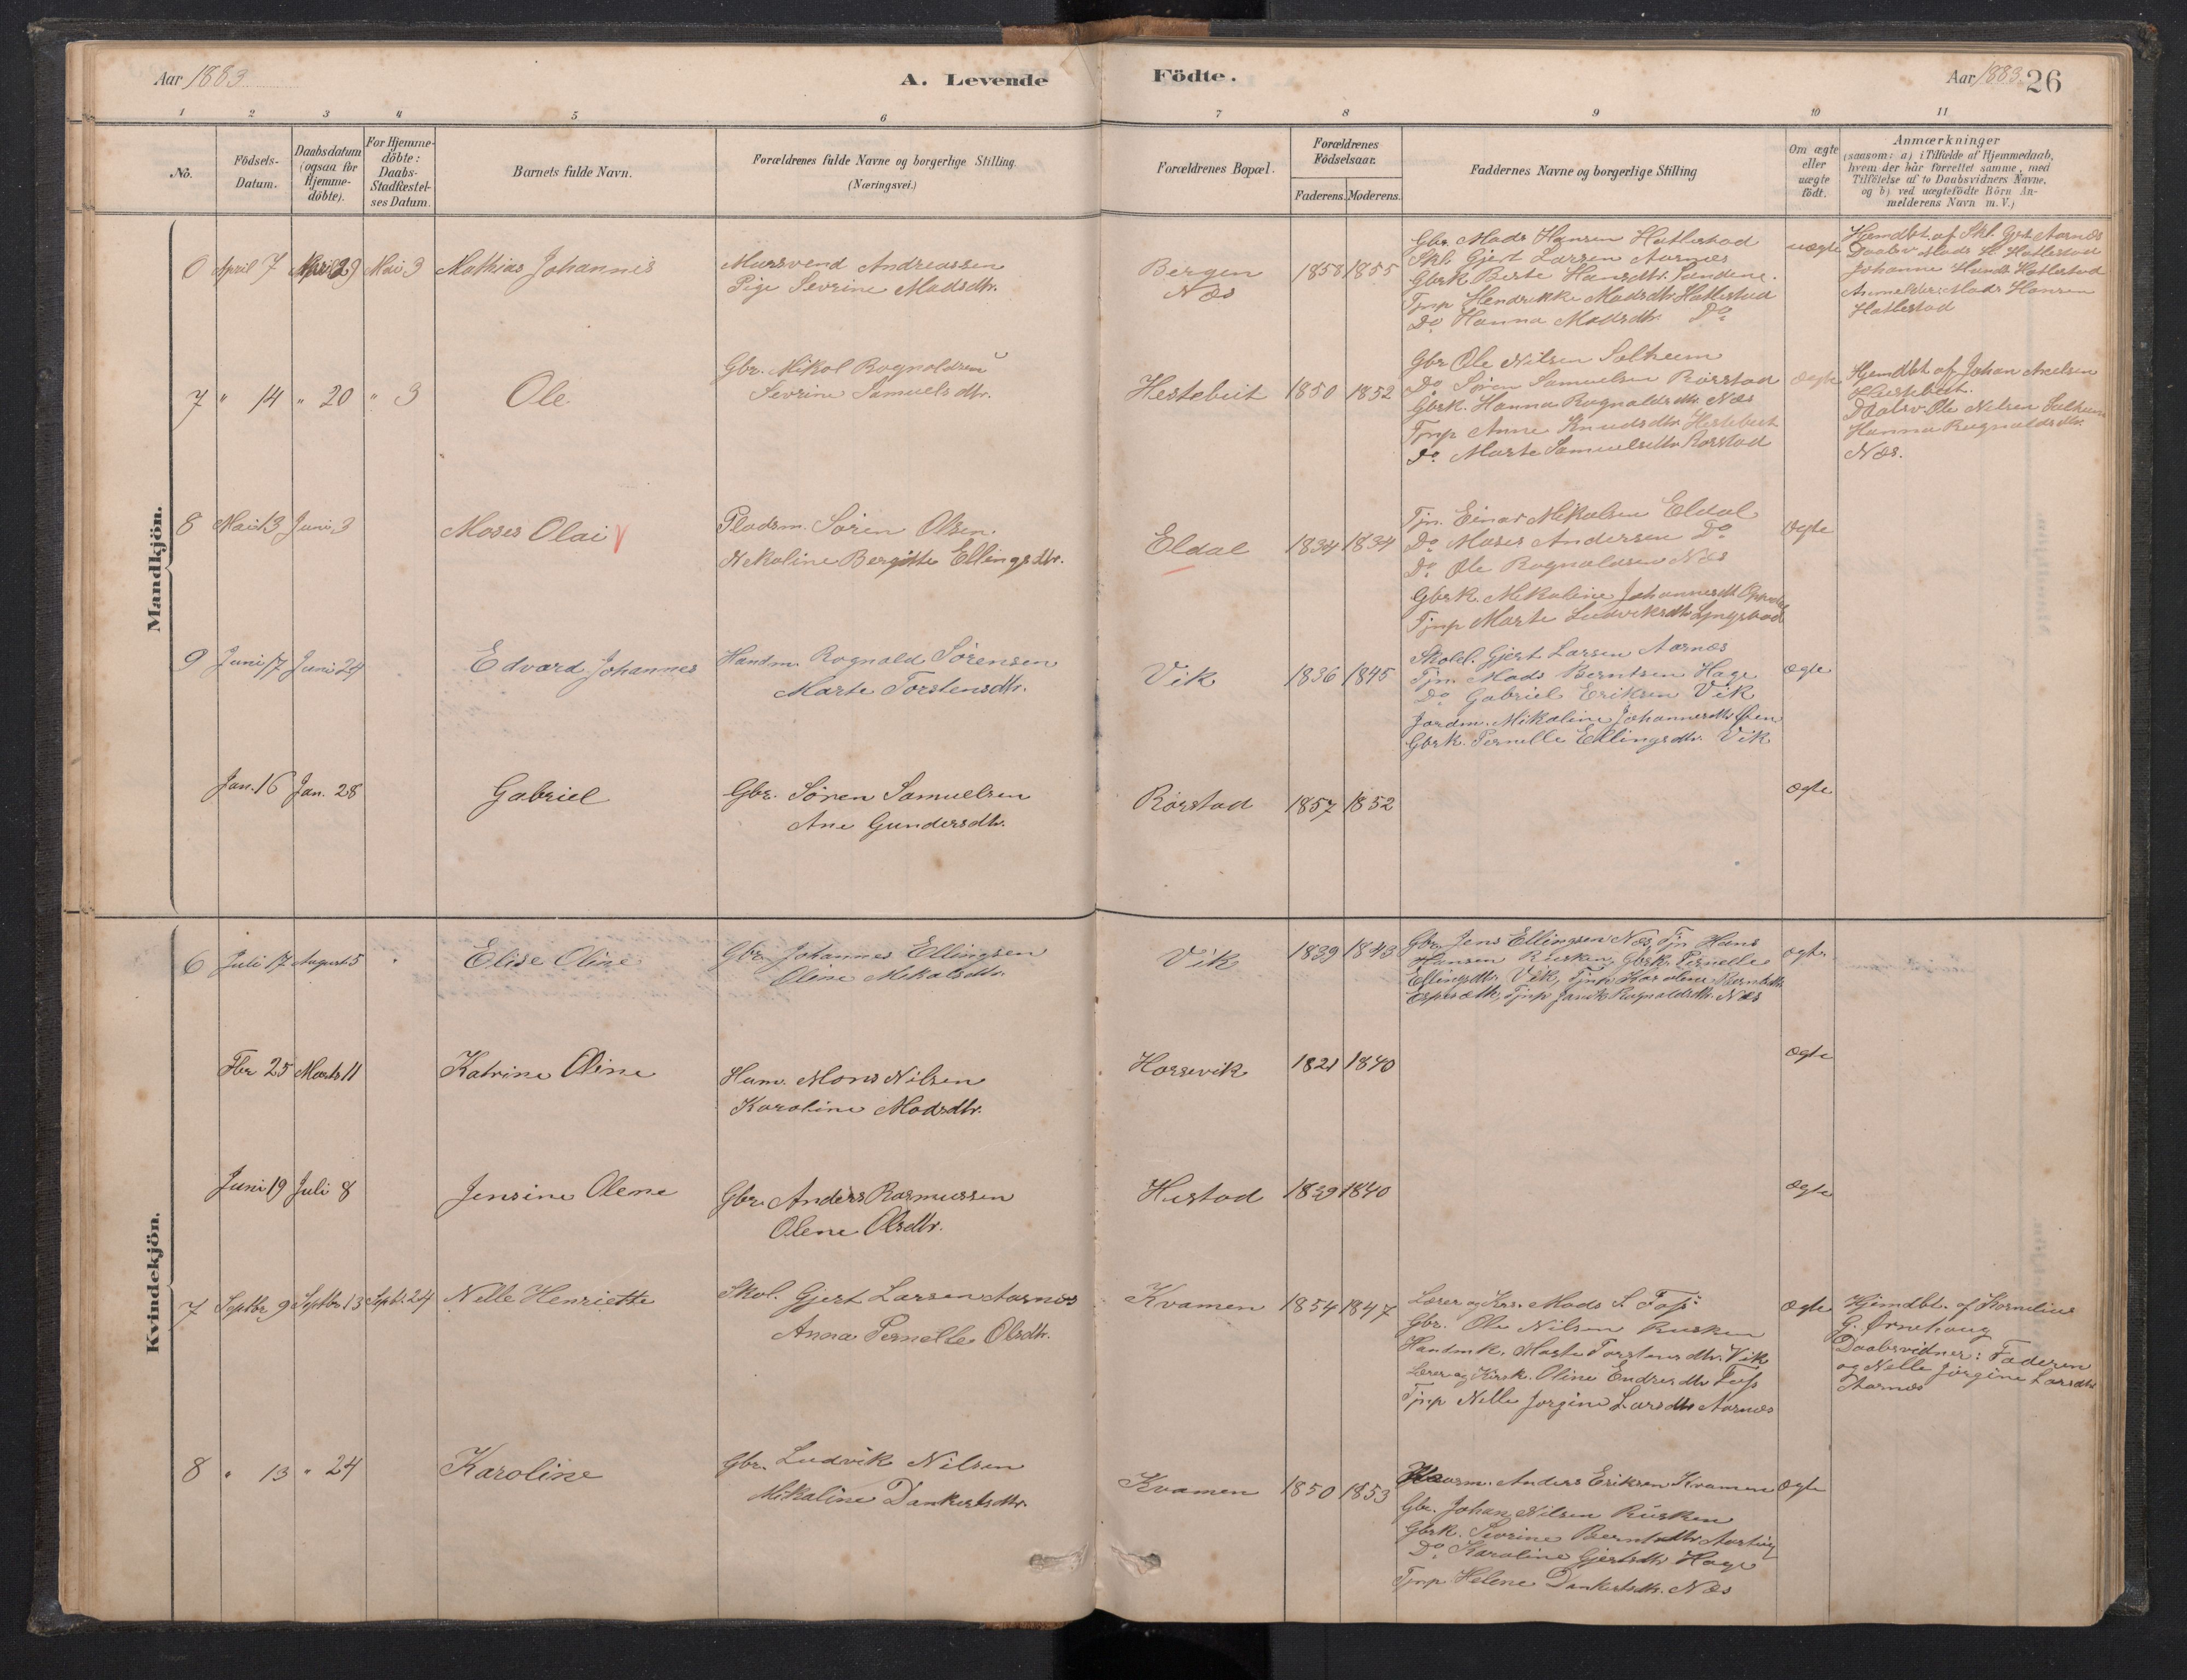 Aar 1883
A. Levende
Födte.
Aar 1883. 26
1 2 3 4 5 6 7 8 9 10 11
No.
Födsels-Datum.
Daabsdatum (ogsaa for Hjemme-döbte).
For Hjemme-döbte: Daabs-Stadfæstel-ses Datum.
Barnets fulde Navn.
Forældrenes fulde Navne og borgerlige Stilling.
(Næringsvei.)
Forældrenes Bopæl.
Forældrenes Födselsaar.
Faderens. Moderens.
Faddernes Navne og borgerlige Stilling
Om ægte eller uægte födt.
Anmærkninger
(saasom: a) i Tilfælde af Hjemmedaab,
hvem der har forrettet samme, med
Tilföielse af to Daabsvidners Navne,
og b) ved uægtefödte Börn An-
melderens Navn m. V.)
Mandkjön.
6 April 7 April 29 Mai 3 Mathias Johannes
Mursvend Andreassen
Pige Sevrine Madsdtr.
Bergen
Næs
1858 1855
Gbr. Mads Hansen Hatlestad
Skl. Gjert Larsen Aarnæs
Gbrk. Berte Hansdtr. Sandene.
Tjnp Hendrikke Madsdtr. Hatlestad
Do Hanna Madsdtr. Do
uægte
Hjemdbt. af Skl. Gjert Aarnæs
Daabsv. Mads H. Hatlestad
Johanne Hatlestad
Anmelder: Mads Hansen
Hatlestad
7 " 14 " 20 " 3 Ole
Gbr. Mikal Rognaldsen
Sevrine Samuelsdtr.
Hestebeit 1850 1852
Gbr Ole Nilsen Solheim
Do Søren Samuelsen Rørstad
Gbrk. Hanna Rognaldsdtr. Næs
Tjnp Anne Knudsdtr. Hestebeit
Do Marte Samuelsdtr. Rørstad
ægte
Hjemdbt. af Johan Axelsen
Hestebeit.
Daabsv. Ole Nilsen Solheim
Hanna Rognaldsdtr.
Næs.
8 Mai 13 Juni 3 Moses Olai
Pladsm. Søren Olsen.
Nikoline Bergitte Ellingsdtr.
Eldal 1834 1834
Tjn. Einar Mikalsen Eldal
Do Moses Andersen Do
Do Ole Rognaldsen Næs
Gbrk. Mikaline Johannesdtr.
Tjnp Marte Ludviksdtr. Lyngstad
ægte
9 Juni 17 Juni 24 Edvard Johannes
Handm. Rognald Sørensen
Marte Torstensdtr.
Vik 1836 1845
Skolel. Gjert Larsen Aarnæs
Tjn. Mads Berntsen Hage
Do Gabriel Eriksen Vik
Jordm. Mikaline Johannesdtr. Øen
Gbrk. Pernelle Ellingsdtr. Vik
ægte
Jan. 16 Jan. 28 Gabriel
Gbr. Søren Samuelsen
Ane Gundersdtr.
Rørstad 1857 1852
ægte
Kvindekjön.
6 Juli 17 August 5 Elise Oline
Gbr. Johannes Ellingsen
Oline Mikalsdtr.
Vik 1839 1843
Gbr. Jens Ellingsen Næs, Tjn Hans
Hansen Rusken, Gbrk. Pernelle
Ellingsdtr. Vik, Tjnp Karolene Berntsdtr.
Tjnp Rognaldsdtr. Næs
ægte
Fbr 25 Marts 11 Katrine Oline
Hum. Mons Nilsen
Karoline Madsdtr.
Horsevik 1821 1840
ægte
Juni 19 Juli 8 Jensine Olene
Gbr. Anders Rasmussen
Olene Olsdtr.
Hustad 1839 1840
ægte
7 Septbr 9 Septbr 13 Septbr. 24 Nelle Henriette
Skol. Gjert Larsen Aarnæs
Anna Pernelle Olsdtr.
Kvamen 1854 1847
Lærer og Krs. Mads S. Foss
Gbr. Ole Nilsen Rusken
Handmk. Marte Torstensdtr. Vik
Lærer og Kirsk. Oline Endresdtr Foss
Tjnp Nelle Jørgine Larsdtr Aarnæs
ægte
Hjemdbt. af Kornelius
G. Ørnehaug
Daabsvidner: Faderen
og Nelle Jørgine Larsdtr
Aarnæs
8 " 13 " 24 Karoline
Gbr. Ludvik Nilsen
Mikaline Dankertsdtr.
Kvamen 1850 1853
Anders Eriksen Kvamen
Gbr. Johan Nilsen Rusken
Gbrk. Sevrine Berntsdtr.
Do Karoline Gjertsdtr Hage
Tjnp Helene Dankertsdtr. Næs
ægte